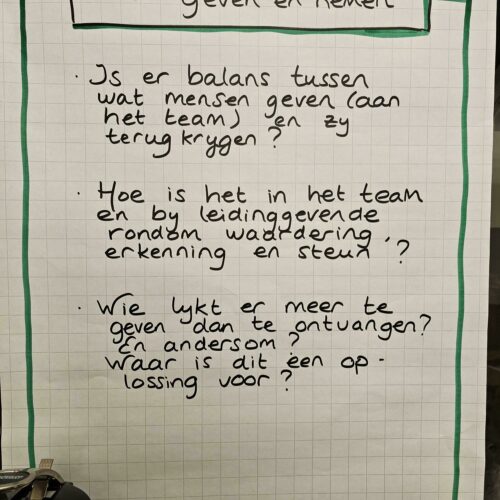 geven en nemen
· Is er balans tussen
wat mensen geven (aan
het team) en zy
terug krygen?
· Hoe is het in het team
en by leidinggevende
rondom waardering,
erkenning en steun?
· Wie lykt er meer te
geven dan te ontvangen?
En andersom?
Waar is dit een op-
lossing voor?